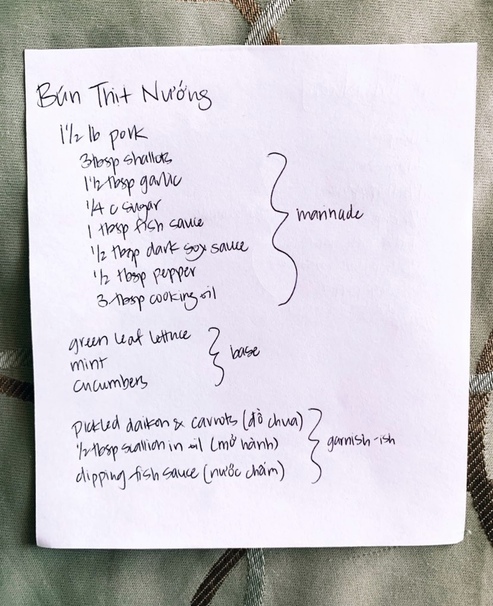 Bún Thịt Nướng
1 1/2 lb pork
3 tbsp shallots
1 1/2 tbsp garlic
1/4 c sugar
1 tbsp fish sauce
1/2 tbsp dark soy sauce
1/2 tbsp pepper
3 tbsp cooking oil
marinade
green leaf lettuce
mint
cucumbers
base
pickled daikon & carrots (đồ chua)
1/2 tbsp scallion in oil (mỡ hành)
dipping fish sauce (nước chấm)
garnish-ish